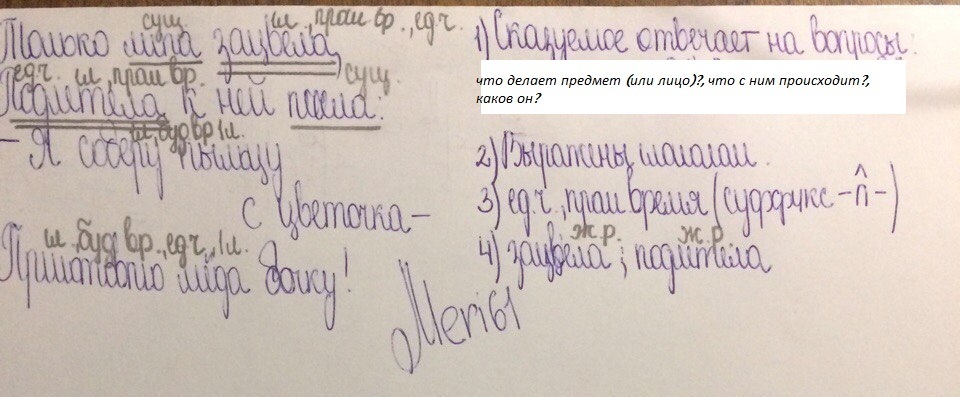 сущ. гл., прош вр., ед.ч.
Только липа зацвела,
ед.ч. гл, прош вр. сущ.
Подлетела к ней пчела:
гл, буд вр 1 л.
- Я соберу пыльцу
с цветочка -
гл, буд вр., ед.ч., 1 л.
Приготовлю мёда бочку!
1) Сказуемое отвечает на вопросы:
что делает предмет (или лицо)?, что с ним происходит?,
каков он?
2) Выражены глаголами.
3) ед.ч., прош время (суффикс -л-)
ж.р. ж.р.
4) зацвела; подлетела
Meri61